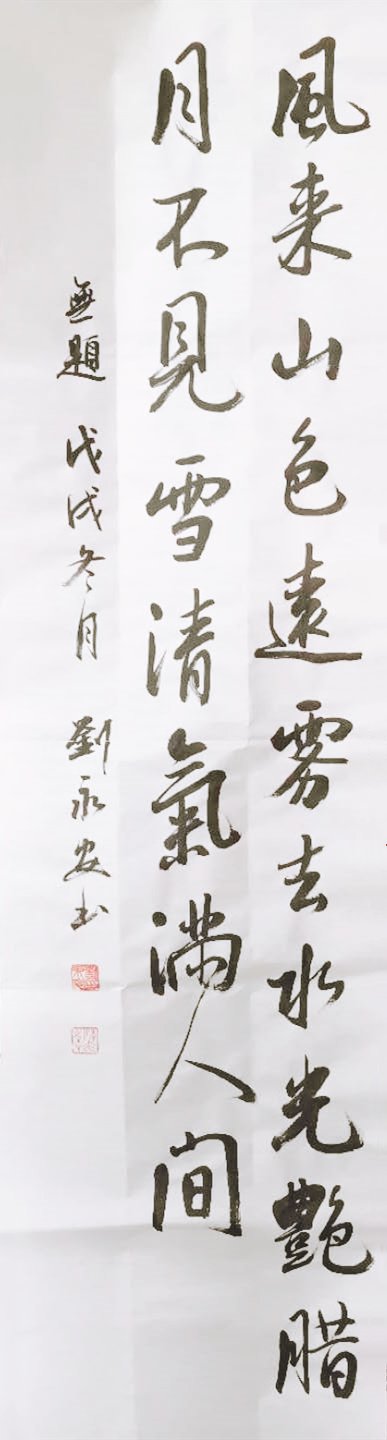 風来山色遠雾去水光艷腊
月不見雪清氣满人间
無題 戊戌冬月 劉永安书